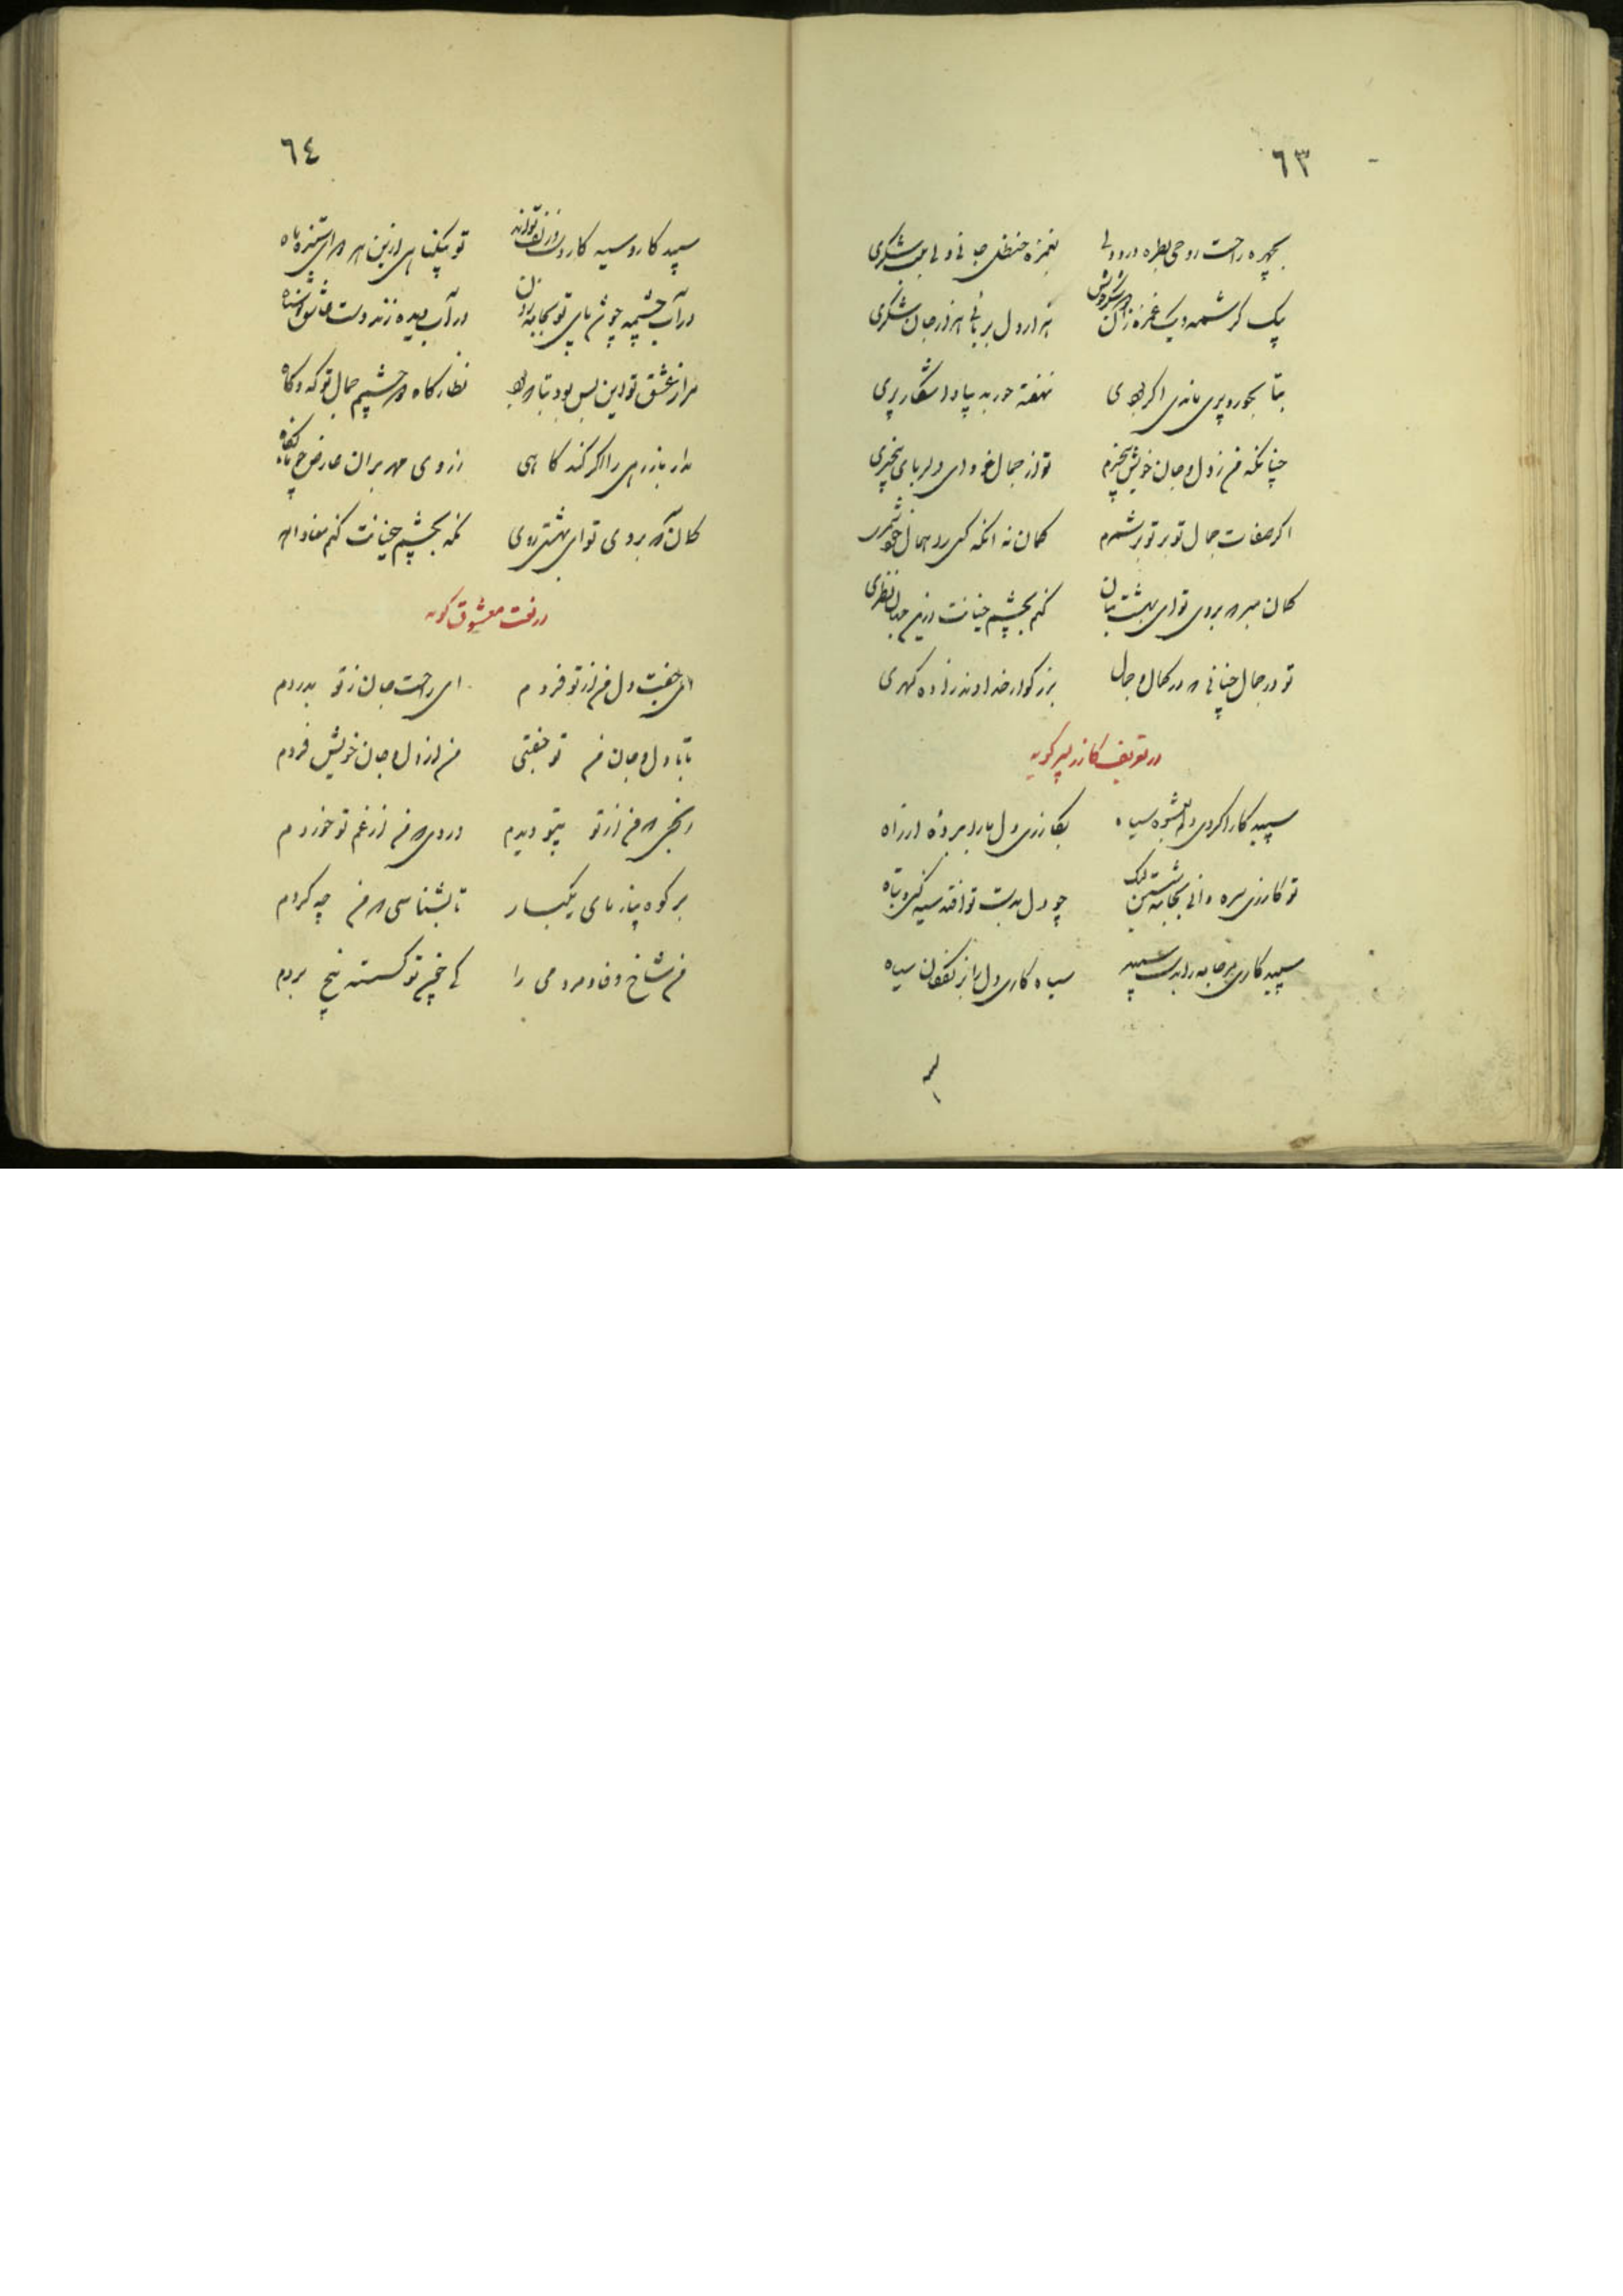 ٦٣
بچهره راحت روحی بطره درد دلی بغمزه حنظل جانی و لب شکری
یک کرشمه و یک غمزه زان هزار دل بربائی هزار جان شکری
بتا بحور و پری مانی اکر نهفته حور پدید آید و اشکار پری
چنانکه من ز دل و جان خویش بیخبرم تو از جمال خود ای دلربای بیخبری
اکر صفات جمال تو بر تو برشمرم کمان نه انکه کی
کمان مبر که بروی تو ای بهشت بتان کنم بچشم خیانت نظری
تو در جمال چنانی که در کمال و جلال بزرکوار خداوند زاده کهری
در تعریف کازر پسر کوید
سپید کارا کردی دلم سیاه بکازری دل ما را ببرده از راه
تو کازری سره دانی بجامه شستن لیک چو دل بدست تو افتد سیه کنی و تباه
سپید کاری مر جامه را بدست سپید سیاه کاری دل را بزلفکان سیاه
٦٤
سپید کار و سیه کار دست و زلف تواند تو بیکناهی ازین هر دو ای ستیزه ماه
در آب چشمه چو من پای تو بجامه زدن در آب دیده زند دست عاشق
مرا ز عشق تو این بس بود بتا که بود نظاره کاه دو چشمم جمال تو که و کاه
مدار باز رهی را اکر کند کاهی ز روی مهر بران عارض چو ماه نکاه
کمان که بروی تو ای بهشتی روی نکه بچشم خیانت کنم معاذ اله
در نعت معشوق کوید
ای جفت دل من از تو فردم ای راحت جان ز تو بدردم
تا با دل و جان من تو جفتی من از دل و جان خویش فردم
رنجی که من از تو بتو دیدم دردی که من از غم تو خوردم
بر کوه بیازمای یکبار تا بشناسی که من چه کردم
من شاخ وفا و مردمی را کی چون تو کسسته بیخ بردم